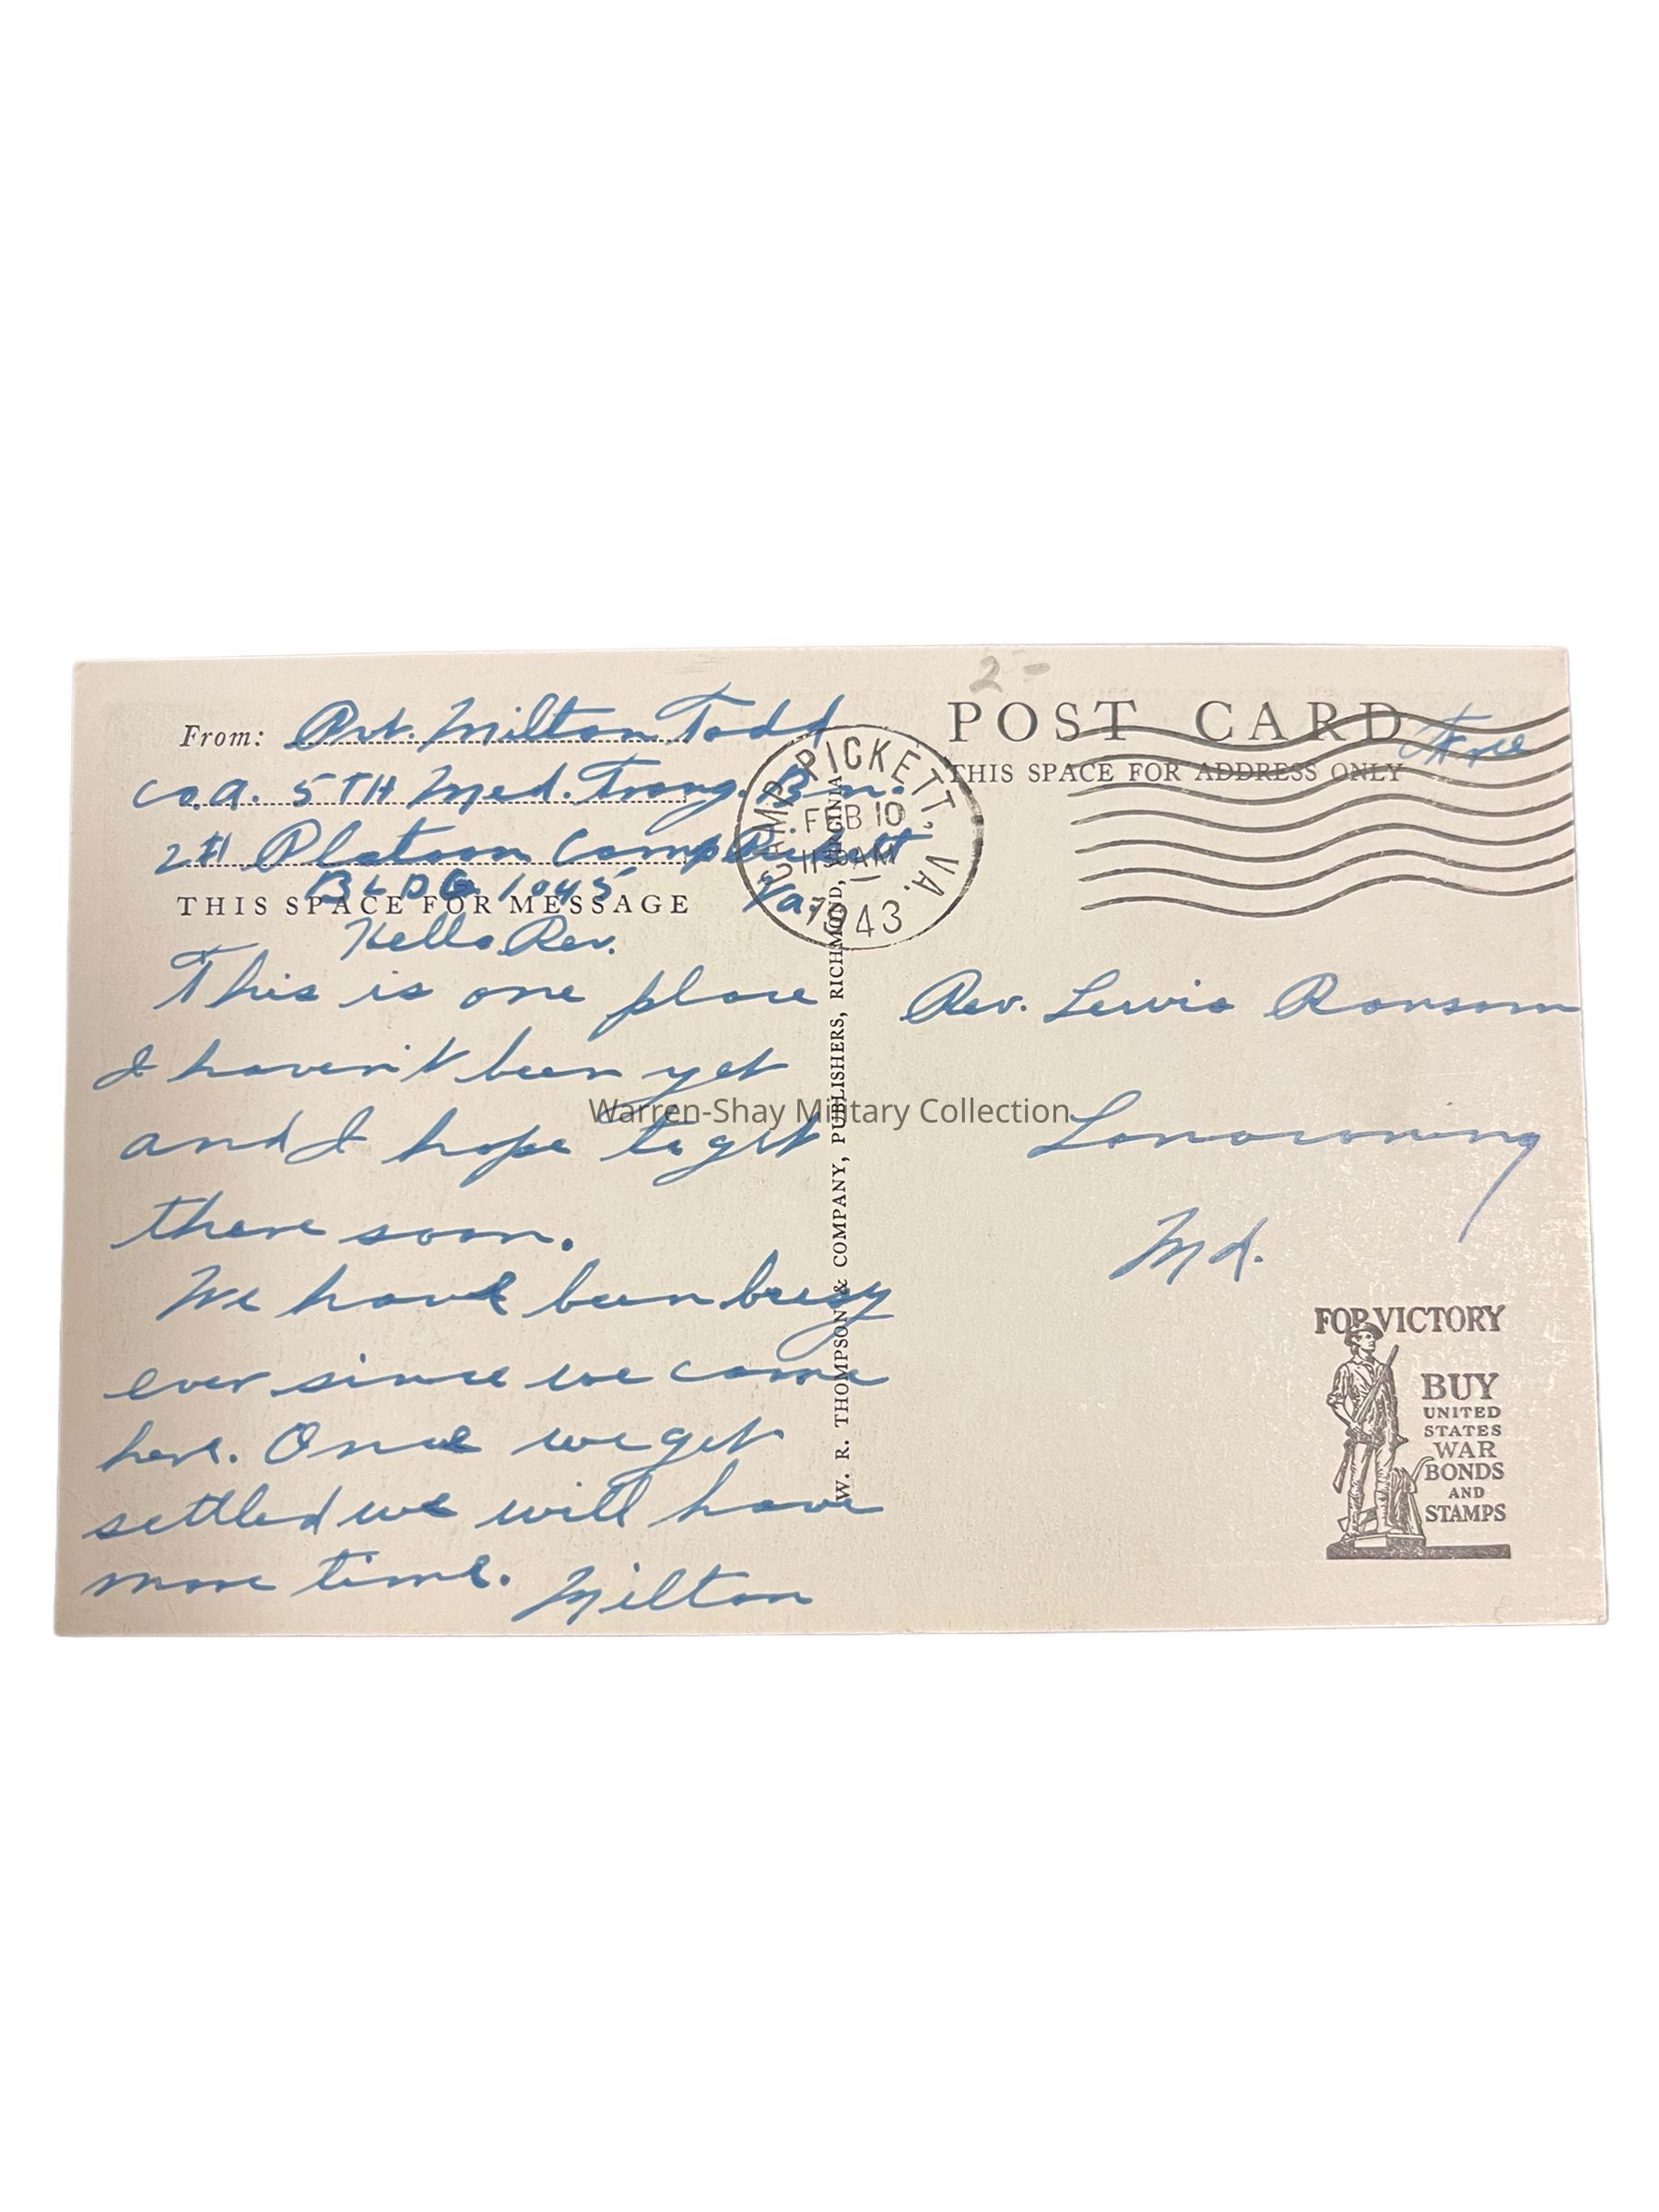 2-
From: Pvt. Milton Todd
Co. A. 5TH Med. Trang. Bn.
2# Platoon Camp Pickett
BLDG 1045 Va.
THIS SPACE FOR MESSAGE
Hello Rev.
This is one place
I haven't been yet
and I hope to get
there soon.
We have been busy
ever since we came
here. Once we get
settled we will have
more time. Milton
W. R. THOMPSON & COMPANY, PUBLISHERS, RICHMOND, VIRGINIA
CAMP PICKETT, VA.
FEB 10
AM
1943
POST CARD
Free
THIS SPACE FOR ADDRESS ONLY
Rev. Lewis Ransom
Lonaconing
Md.
FOR VICTORY
BUY
UNITED
STATES
WAR
BONDS
AND
STAMPS
Warren-Shay Military Collection